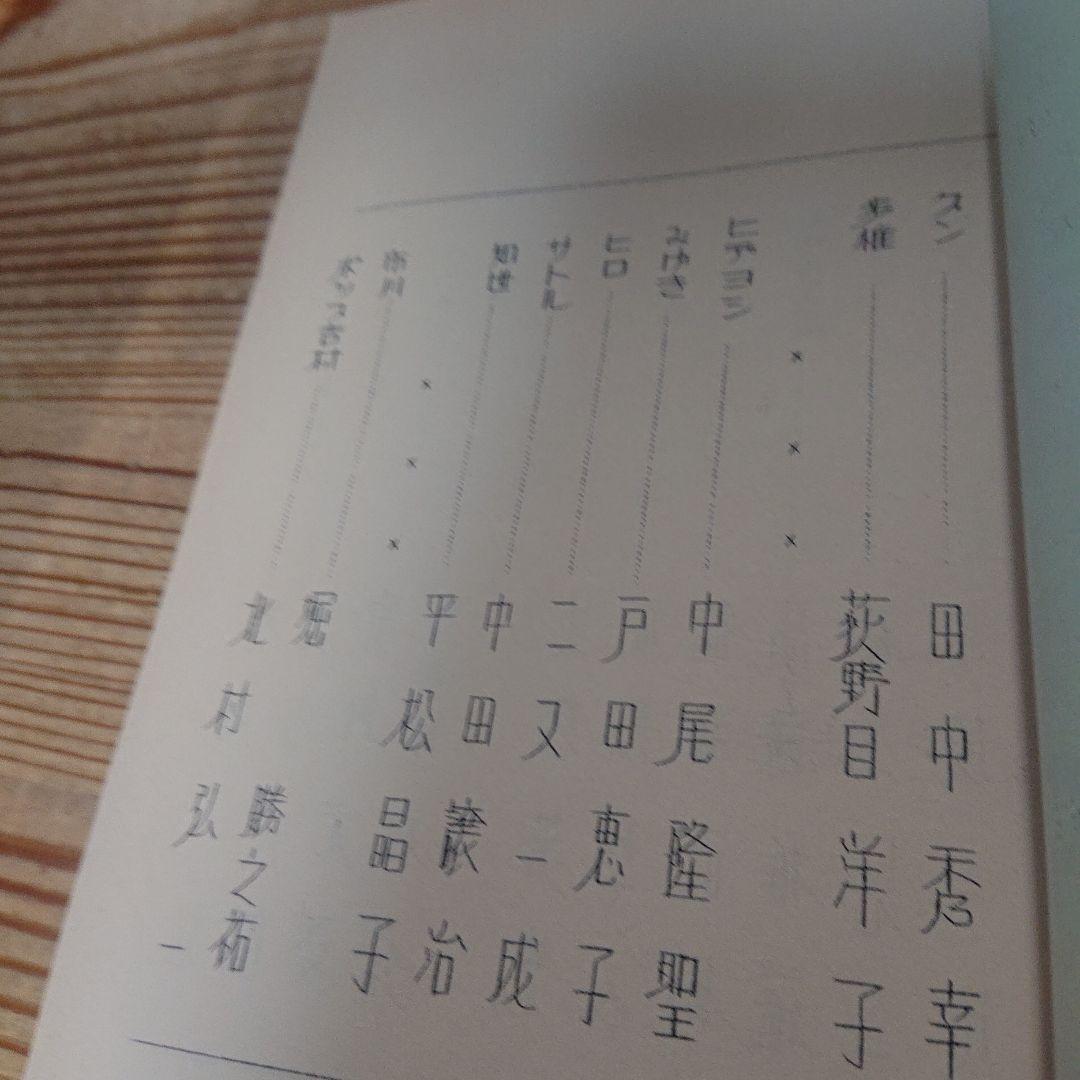 スン………田中秀幸
多椎………荻野目洋子
× × ×
ヒデヨシ………中尾隆聖
みゆき………戸田恵子
ヒロ………二又一成
サトル………中田譲治
知佳………平松晶子
× × ×
市川………堀勝之祐
北村弘一